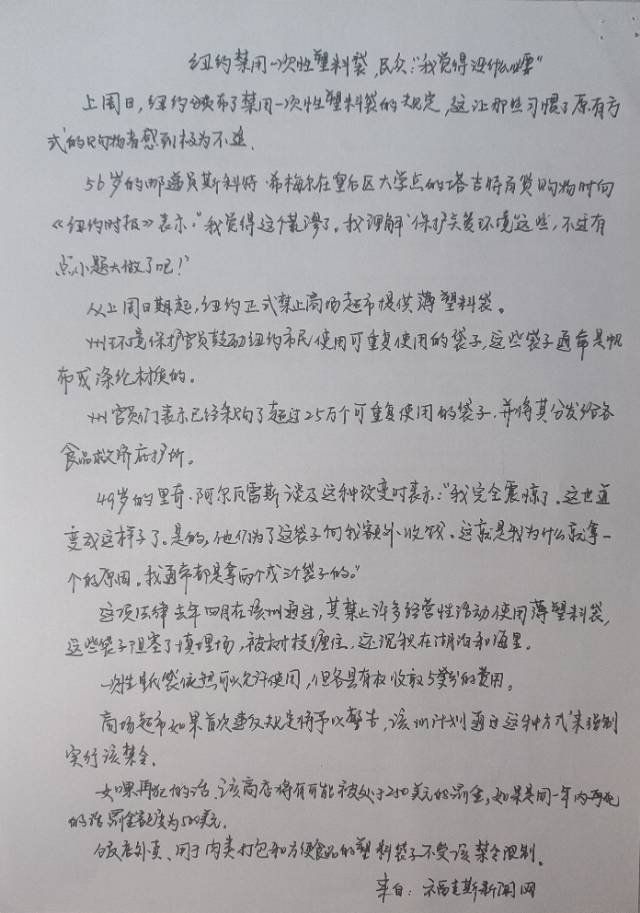 纽约禁用一次性塑料袋,民众:“我觉得没什么必要”
上周日,纽约颁布了禁用一次性塑料袋的规定,这让那些习惯了原有方
式的购物者感到极为不适.
56岁的邮递员斯科特·希梅尔在皇后区大学点的塔吉特百货购物时向
《纽约时报》表示:“我觉得这个荒谬了。我理解‘保护关爱环境’这些,不过有
点小题大做了吧!”
从上周日期起,纽约正式禁止商场超市提供薄塑料袋。
州环境保护官员鼓励纽约市民使用可重复使用的袋子,这些袋子通常是帆
布或涤纶材质的。
州官员们表示已经采购了超过25万个可重复使用的袋子,并将其分发给各
食品救济庇护所。
49岁的里奇·阿尔瓦雷斯谈及这种改变时表示:“我完全震惊了。这世道
变成这样子了。是的,他们为了这袋子向我额外收钱。这就是我为什么就拿一
个的原因。我通常都是拿两个或三个袋子的。”
这项法律去年四月在该州通过,其禁止许多经营性活动使用薄塑料袋,
这些袋子阻塞了填埋场,被树枝缠住,还沉积在湖泊和海里。
一次性纸袋依然可以允许使用,但各县有权收取5美分的费用。
商场超市如果首次违反规定将予以警告,该州计划通过这种方式来强制
实行该禁令.
如果再犯的话,该商店将有可能被处于250美元的罚金,如果是同一年内再犯
的话罚金数度为500美元.
饭店外卖、用于肉类打包和方便食品的塑料袋子不受该禁令限制.
来自:福克斯新闻网